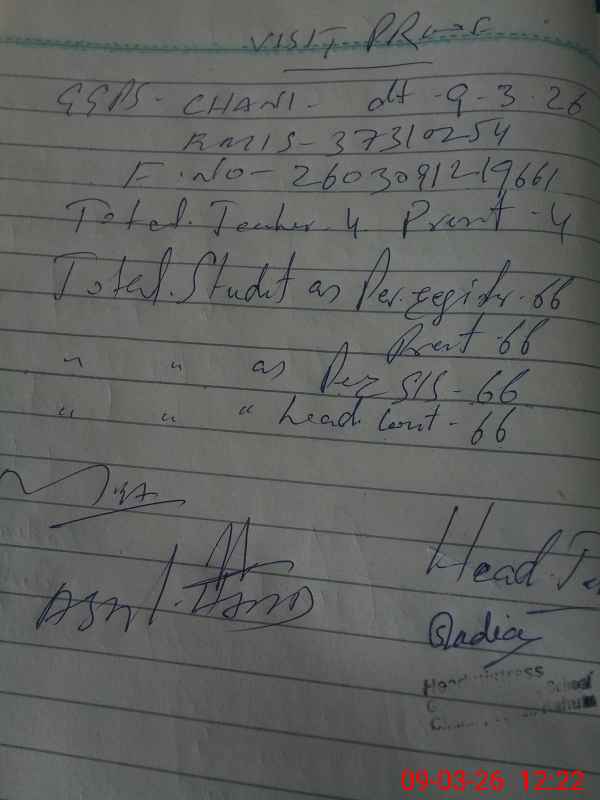 VISIT PROOF
GGPS - CHANI - dt - 9 - 3 - 26
EMIS - 37310254
F. NO - 2603091219661
Total. Teacher. 4 Present - 4
Total. Student as Per. register. 66
Present 66
" " as Per SIS - 66
" " " head Count - 66
Head
Qadia
Headmistress
School
09-03-26 12:22